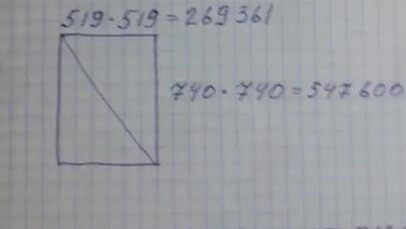 519·519=269361
740·740=547600